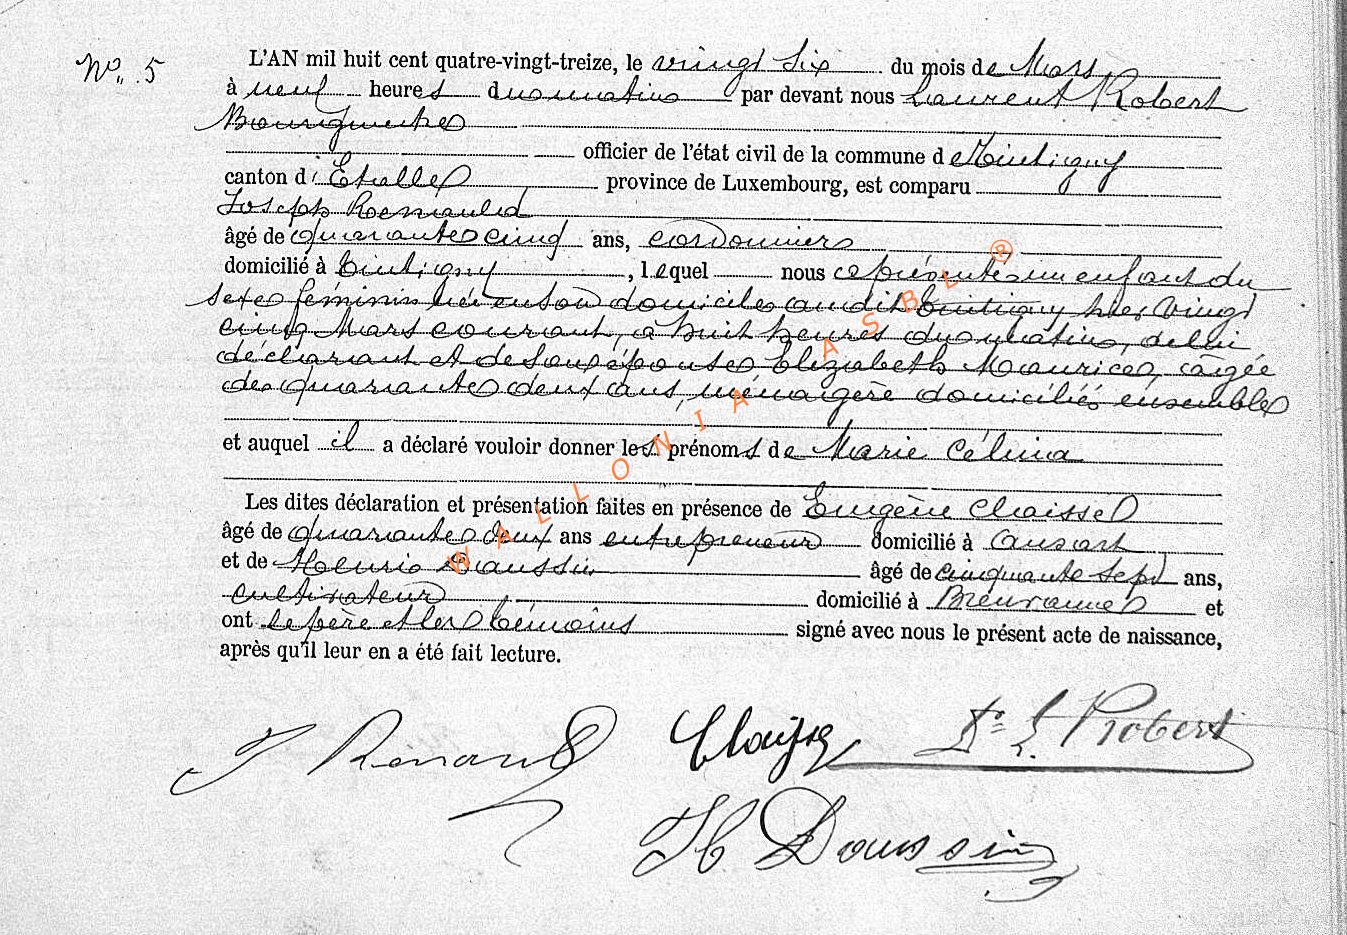 N° 5
L'AN mil huit cent quatre-vingt-treize, le vingt six du mois de Mars
à neuf heures du matin par devant nous Laurent Robert
Bourgmestre
officier de l'état civil de la commune de Tintigny
canton d'Etalle province de Luxembourg, est comparu
Joseph Renauld
âgé de quarante cinq ans, cordonnier
domicilié à Tintigny, lequel nous a présenté un enfant du
sexe féminin né en son domicile audit Tintigny hier vingt
cinq Mars courant, à huit heures du matin, de lui
déclarant et de son épouse Elizabeth Maurice, âgée
de quarante deux ans, ménagère domiciliés ensemble
et auquel il a déclaré vouloir donner les prénoms de Marie Célina
Les dites déclaration et présentation faites en présence de Eugène Claisse
âgé de quarante deux ans entrepreneur domicilié à Ansart
et de Henri Daussin âgé de cinquante sept ans,
cultivateur domicilié à Breuvanne et
ont le père et les témoins signé avec nous le présent acte de naissance,
après qu'il leur en a été fait lecture.
J Renauld Claisse Dr L. Robert
H Daussin
WALLONIA ASBL ®